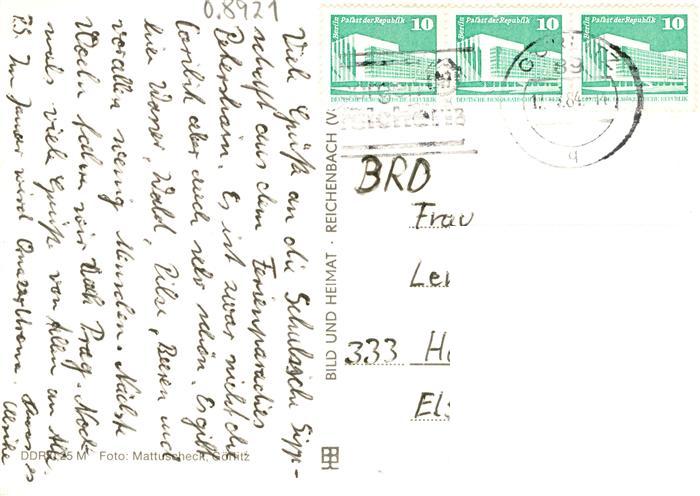 0.8921
Viele Grüße an die Schulsische Sipp-
schaft aus dem Ferienparadies
Petershain. Es ist zwar nicht die
aber auch sehr schön. Es gibt
hier Wasser, Wald, Pilze, Beeren und
vorallem wenig Menschen. Nächste
Woche fahren wir nach Prag. Noch-
mals viele Grüße von Allen an Alle
25. Im Januar wird
Ulrike
DDR 0,25 M Foto: Mattuscheck, Görlitz
BILD UND HEIMAT · REICHENBACH (V.
Berlin Palast der Republik 10
DEUTSCHE DEMOKRATISCHE REPUBLIK
Berlin Palast der Republik 10
DEUTSCHE DEMOKRATISCHE REPUBLIK
Berlin Palast der Republik 10
DEUTSCHE DEMOKRATISCHE REPUBLIK
BRD
Frau
333